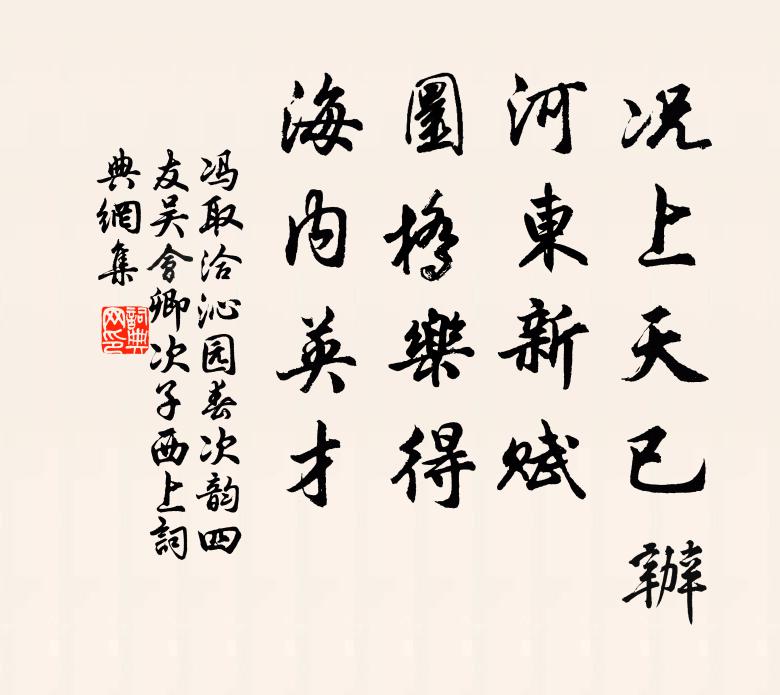 况上天已辦
河東新賦
圜橋樂得
海内英才
冯取洽沁园春次韵四
友吴會卿次子西上詞
典網集
詞典网印